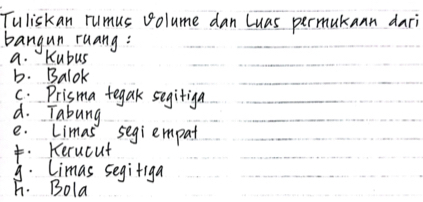 Tuliskan rumus volume dan Luas permukaan dari
bangun ruang :
a. Kubus
b. Balok
c. Prisma tegak segitiga
d. Tabung
e. Limas segi empat
f. Kerucut
g. Limas segitiga
h. Bola